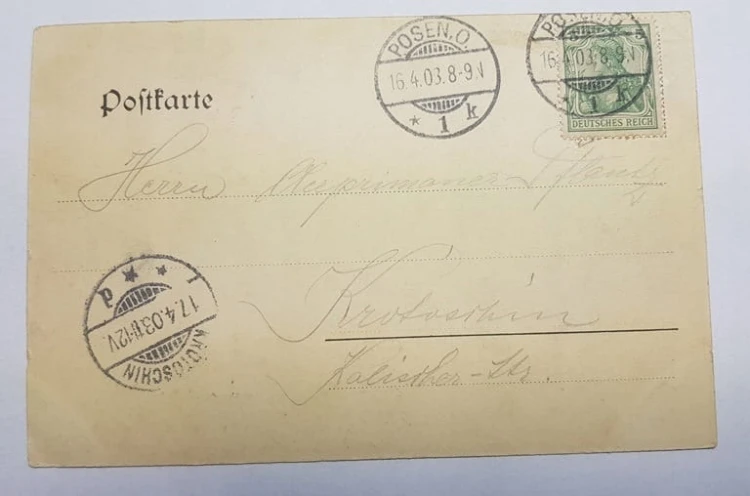 POSEN.O.
16.4.03.8-9N
* 1 k
POSEN.O.
16.4.03.8-9N
* 1 k
5
DEUTSCHES REICH
Poſtkarte
Herrn
Krotoschin
KROTOSCHIN
17.4.03.11-12V.
Kalischer-Str.